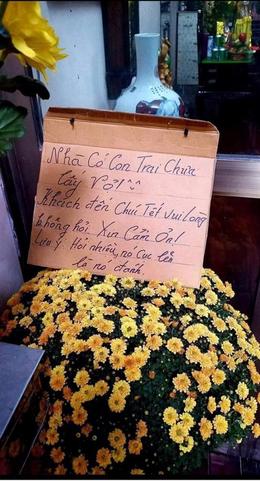 Nhà Có Con Trai Chưa
Lấy Vợ!
Khách đến Chúc Tết vui lòng
không hỏi Xin Cảm Ơn!
Lưu Ý: Hỏi nhiều nó Cục lên
là nó đánh